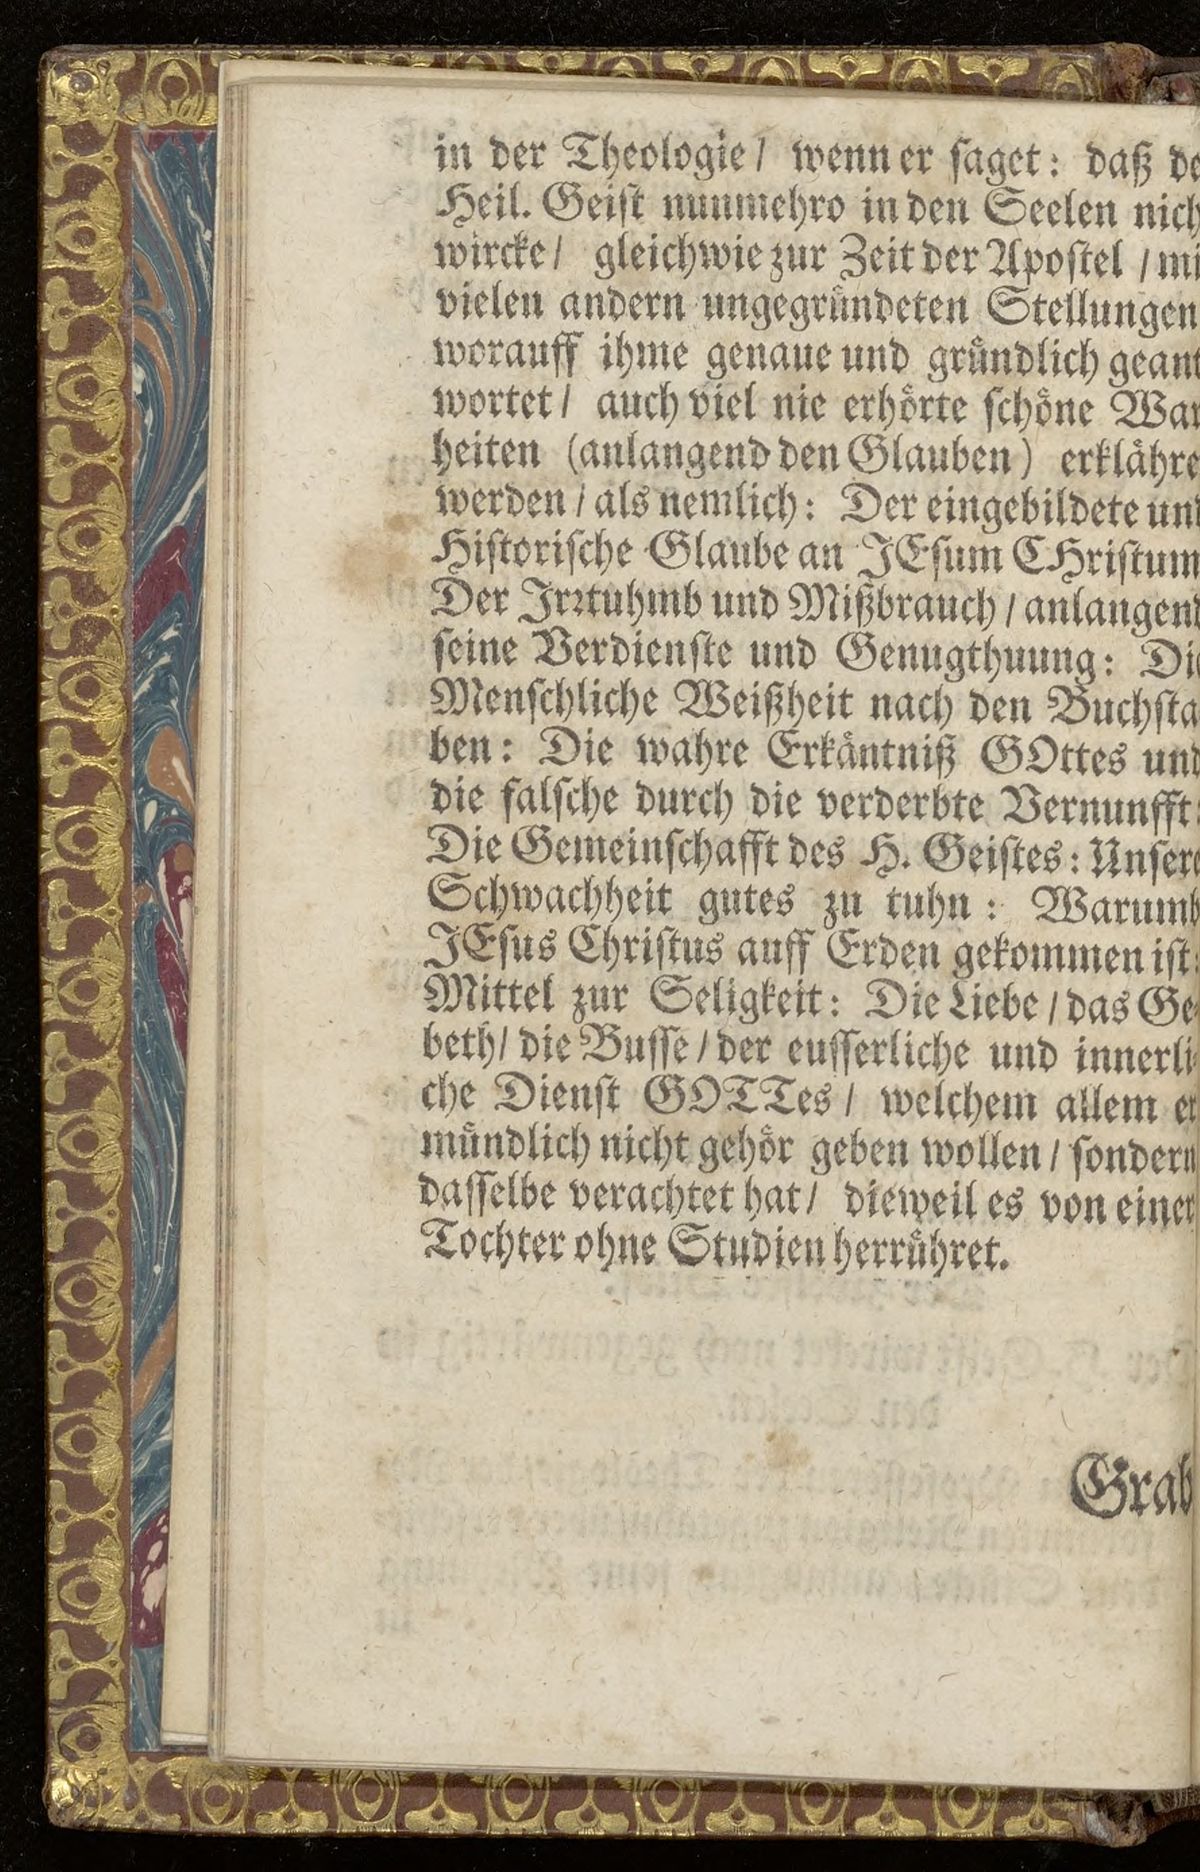 in der Theologie / wenn er saget: daß de
Heil. Geist nunmehro in den Seelen nich
wircke / gleichwie zur Zeit der Apostel / mi
vielen andern ungegründeten Stellungen
worauff ihme genaue und gründlich geant
wortet / auch viel nie erhörte schöne War
heiten (anlangend den Glauben) erklähre
werden / als nemlich: Der eingebildete und
Historische Glaube an JEsum CHristum
Der Irrtuhmb und Mißbrauch / anlangend
seine Verdienste und Genugthuung: Die
Menschliche Weißheit nach den Buchsta
ben: Die wahre Erkäntniß GOttes und
die falsche durch die verderbte Vernunfft:
Die Gemeinschafft des H. Geistes: Unsere
Schwachheit gutes zu tuhn: Warumb
JEsus Christus auff Erden gekommen ist:
Mittel zur Seligkeit: Die Liebe / das Ge-
beth / die Busse / der eusserliche und innerli-
che Dienst GOTTes / welchem allem er
mündlich nicht gehör geben wollen / sondern
dasselbe verachtet hat / dieweil es von einer
Tochter ohne Studien herrühret.
Grab